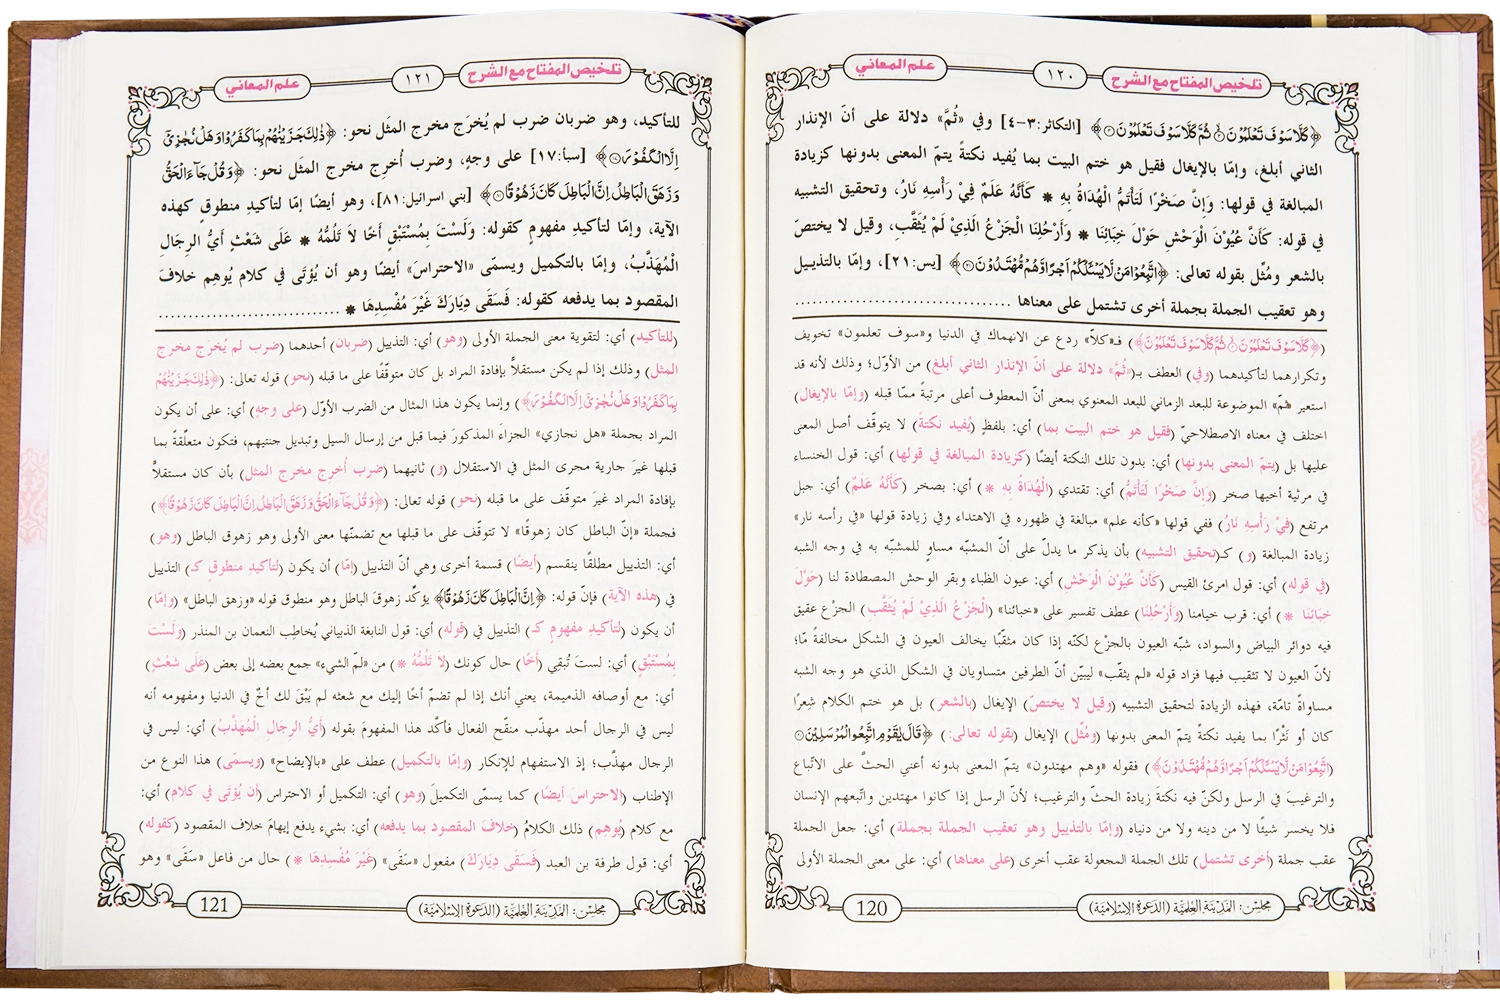 تلخيص المفتاح مع الشرح
١٢٠
علم المعاني
﴿كَلَّا سَوْفَ تَعْلَمُوْنَ ثُمَّ كَلَّا سَوْفَ تَعْلَمُوْنَ﴾ [التكاثر:٣-٤] وفي «ثُمَّ» دلالة على أنّ الإنذار
الثاني أبلغ، وإمّا بالإيغال فقيل هو ختم البيت بما يُفيد نكتةً يتمّ المعنى بدونها كزيادة
المبالغة في قولها: وَإِنَّ صَخْرًا لَتَأْتَمُّ الْهُدَاةُ بِهِ * كَأَنَّهُ عَلَمٌ فِيْ رَأْسِهِ نَارُ، وتحقيق التشبيه
في قوله: كَأَنَّ عُيُوْنَ الْوَحْشِ حَوْلَ خِبَائِنَا * وَأَرْحُلِنَا الْجَزْعُ الَّذِيْ لَمْ يُثَقَّبِ، وقيل لا يختصّ
بالشعر ومُثِّل بقوله تعالى: ﴿اتَّبِعُوْا مَنْ لَّا يَسْـَٔلُكُمْ اَجْرًا وَّهُمْ مُّهْتَدُوْنَ﴾ [يس:٢١]، وإمّا بالتذييل
وهو تعقيب الجملة بجملة أخرى تشتمل على معناها ................................
(﴿كَلَّا سَوْفَ تَعْلَمُوْنَ ثُمَّ كَلَّا سَوْفَ تَعْلَمُوْنَ﴾) فـ«كلاّ» ردع عن الانهماك في الدنيا و«سوف تعلمون» تخويف
وتكرارهما لتأكيدهما (وفي) العطف بـ(«ثُمَّ» دلالة على أنّ الإنذار الثاني أبلغ) من الأوّل؛ وذلك لأنه قد
استعير «ثمّ» الموضوعة للبعد الزماني للبعد المعنوي بمعنى أنّ المعطوف أعلى مرتبة ممّا قبله (وإمّا بالإيغال)
اختلف في معناه الاصطلاحيّ (فقيل هو ختم البيت بما) أي: بلفظٍ (يُفيد نكتةً) لا يتوقّف أصل المعنى
عليها بل (يتمّ المعنى بدونها) أي: بدون تلك النكتة أيضًا (كزيادة المبالغة في قولها) أي: قول الخنساء
في مرثية أخيها صخر (وَإِنَّ صَخْرًا لَتَأْتَمُّ) أي: تقتدي (الْهُدَاةُ بِهِ *) أي: بصخر (كَأَنَّهُ عَلَمٌ) أي: جبل
مرتفع (فِيْ رَأْسِهِ نَارُ) ففي قولها «كأنه علم» مبالغة في ظهوره في الاهتداء وفي زيادة قولها «في رأسه نار»
زيادة المبالغة (و) كـ(تحقيق التشبيه) بأن يذكر ما يدلّ على أنّ المشبّه مساوٍ للمشبّه به في وجه الشبه
(في قوله) أي: قول امرئ القيس (كَأَنَّ عُيُوْنَ الْوَحْشِ) أي: عيون الظباء وبقر الوحش المصطادة لنا (حَوْلَ
خِبَائِنَا *) أي: قرب خيامنا (وَأَرْحُلِنَا) عطف تفسير على «خبائنا» (الْجَزْعُ الَّذِيْ لَمْ يُثَقَّبِ) الجزْع عقيق
فيه دوائر البياض والسواد، شبّه العيون بالجزْع لكنّه إذا كان مثقّبًا يخالف العيون في الشكل مخالفةً مّا؛
لأنّ العيون لا تثقيب فيها فزاد قوله «لم يثقّب» ليبيّن أنّ الطرفين متساويان في الشكل الذي هو وجه الشبه
مساواةً تامّة، فهذه الزيادة لتحقيق التشبيه (وقيل لا يختصّ) الإيغال (بالشعر) بل هو ختم الكلام شِعرًا
كان أو نَثْرًا بما يفيد نكتةً يتمّ المعنى بدونها (ومُثِّل) الإيغال (بقوله تعالى:) ﴿قَالَ يٰقَوْمِ اتَّبِعُوا الْمُرْسَلِيْنَ
(اتَّبِعُوْا مَنْ لَّا يَسْـَٔلُكُمْ اَجْرًا وَّهُمْ مُّهْتَدُوْنَ﴾) فقوله «وهم مهتدون» يتمّ المعنى بدونه أعني الحثَّ على الاتّباع
والترغيبَ في الرسل ولكنّ فيه نكتةَ زيادة الحثّ والترغيب؛ لأنّ الرسل إذا كانوا مهتدين واتّبعهم الإنسان
فلا يخسر شيئًا لا من دينه ولا من دنياه (وإمّا بالتذييل وهو تعقيب الجملة بجملة) أي: جعل الجملة
عقب جملة (أخرى تشتمل) تلك الجملة المجعولة عقب أخرى (على معناها) أي: على معنى الجملة الأولى
مجلس: المدينة العلمية (الدعوة الإسلامية)
120
تلخيص المفتاح مع الشرح
١٢١
علم المعاني
للتأكيد، وهو ضربان ضرب لم يُخرَج مخرج المثَل نحو: ﴿ذٰلِكَ جَزَيْنٰهُمْ بِمَا كَفَرُوْا وَهَلْ نُجٰزِيْٓ
اِلَّا الْكَفُوْرَ﴾ [سبأ:١٧] على وجهٍ، وضرب أُخرِج مخرج المثَل نحو: ﴿وَقُلْ جَآءَ الْحَقُّ
وَزَهَقَ الْبَاطِلُ اِنَّ الْبَاطِلَ كَانَ زَهُوْقًا﴾ [بني اسرائيل:٨١]، وهو أيضًا إمّا لتأكيدِ منطوقٍ كهذه
الآية، وإمّا لتأكيدِ مفهومٍ كقوله: وَلَسْتَ بِمُسْتَبْقٍ أَخًا لاَ تَلُمُّهُ * عَلَى شَعْثٍ أَيُّ الرِجَالِ
الْمُهَذَّبُ، وإمّا بالتكميل ويسمّى «الاحتراسَ» أيضًا وهو أن يُؤتَى في كلام يُوهِم خلافَ
المقصود بما يدفعه كقوله: فَسَقَى دِيَارَكِ غَيْرَ مُفْسِدِهَا * ...........................
(للتأكيد) أي: لتقوية معنى الجملة الأولى (وهو) أي: التذييل (ضربان) أحدهما (ضرب لم يُخرَج مخرج
المثل) وذلك إذا لم يكن مستقلاًّ بإفادة المراد بل كان متوقّفًا على ما قبله (نحو) قوله تعالى: (﴿ذٰلِكَ جَزَيْنٰهُمْ
بِمَا كَفَرُوْا وَهَلْ نُجٰزِيْٓ اِلَّا الْكَفُوْرَ﴾) وإنما يكون هذا المثال من الضرب الأوّل (على وجهٍ) أي: على أن يكون
المراد بجملة «هل نجازي» الجزاءَ المذكورَ فيما قبل من إرسال السيل وتبديل جنتيهم، فتكون متعلّقةً بما
قبلها غيرَ جارية مجرى المثل في الاستقلال (و) ثانيهما (ضرب أُخرِج مخرج المثل) بأن كان مستقلاًّ
بإفادة المراد غيرَ متوقّف على ما قبله (نحو) قوله تعالى: (﴿وَقُلْ جَآءَ الْحَقُّ وَزَهَقَ الْبَاطِلُ اِنَّ الْبَاطِلَ كَانَ زَهُوْقًا﴾)
فجملة «إنّ الباطل كان زهوقًا» لا تتوقّف على ما قبلها مع تضمّنها معنى الأولى وهو زهوق الباطل (وهو)
أي: التذييل مطلقًا ينقسم (أيضًا) قسمة أخرى وهي أنّ التذييل (إمّا) أن يكون (لتأكيد منطوقٍ كـ) التذييل
في (هذه الآية) فإنّ قوله: ﴿اِنَّ الْبَاطِلَ كَانَ زَهُوْقًا﴾ يؤكّد زهوقَ الباطل وهو منطوق قوله «وزهق الباطل» (وإمّا)
أن يكون (لتأكيدِ مفهومٍ كـ) التذييل في (قوله) أي: قول النابغة الذبياني يُخاطِب النعمان بن المنذر (وَلَسْتَ
بِمُسْتَبْقٍ) أي: لستَ تُبقي (أَخًا) حال كونك (لاَ تَلُمُّهُ *) من «لمّ الشيء» جمع بعضه إلى بعض (عَلَى شَعْثٍ)
أي: مع أوصافه الذميمة، يعني أنك إذا لم تضمّ أخًا إليك مع شعثه لم يَبْقَ لك أخٌ في الدنيا ومفهومه أنه
ليس في الرجال أحد مهذّب منقّح الفعال فأكّد هذا المفهومَ بقوله (أَيُّ الرِجَالِ الْمُهَذَّبُ) أي: ليس في
الرجال مهذّب؛ إذ الاستفهام للإنكار (وإمّا بالتكميل) عطف على «بالإيضاح» (ويسمّى) هذا النوع من
الإطناب (الاحتراسَ أيضًا) كما يسمّى التكميلَ (وهو) أي: التكميل أو الاحتراس (أن يُؤتَى في كلام) أي:
مع كلام (يُوهِم) ذلك الكلامُ (خلافَ المقصود بما يدفعه) أي: بشيء يدفع إيهامَ خلاف المقصود (كقوله)
أي: قول طرفة بن العبد (فَسَقَى دِيَارَكِ) مفعول «سَقَى» (غَيْرَ مُفْسِدِهَا *) حال من فاعل «سَقَى» وهو
مجلس: المدينة العلمية (الدعوة الإسلامية)
121